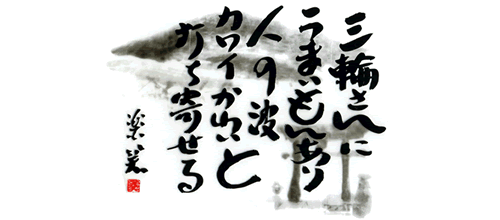 三輪さんに
うまいもんあり
人の波
カワイかわいと
打ち寄せる